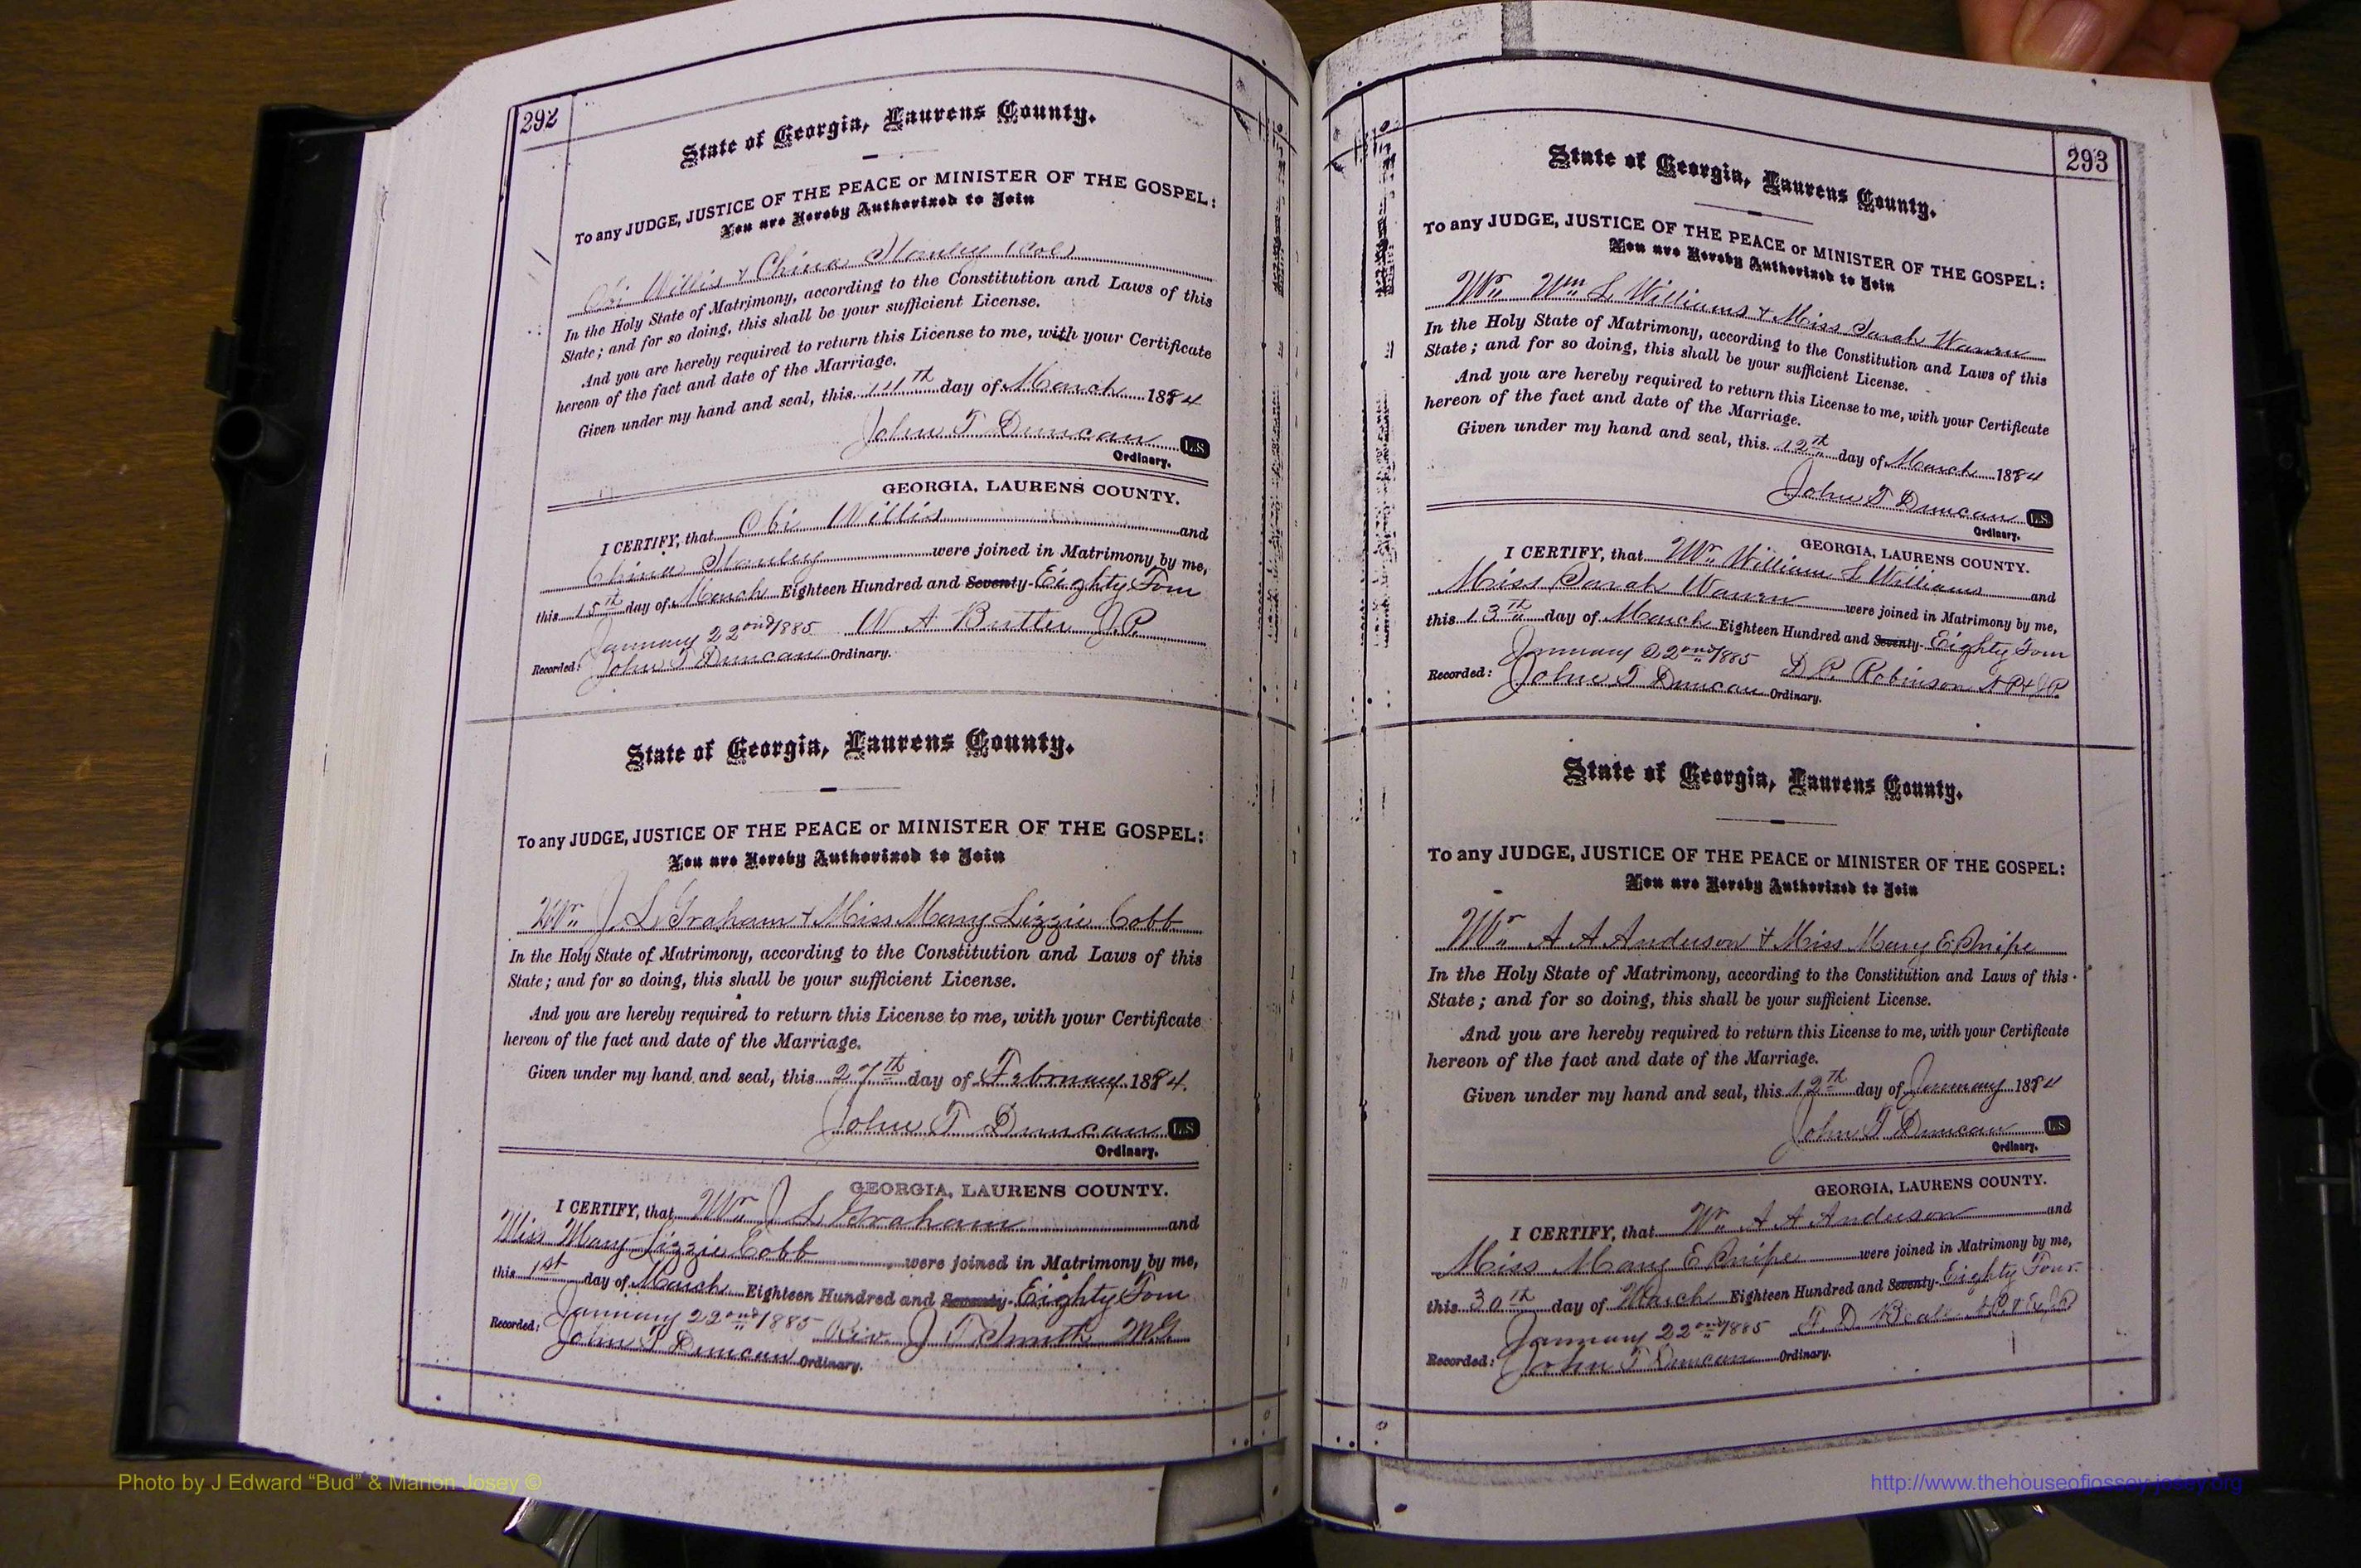 292
State of Georgia, Laurens County.
To any JUDGE, JUSTICE OF THE PEACE or MINISTER OF THE GOSPEL:
You are Hereby Authorized to Join
Obi Willis & China Stanley (Col)
In the Holy State of Matrimony, according to the Constitution and Laws of this
State; and for so doing, this shall be your sufficient License.
And you are hereby required to return this License to me, with your Certificate
hereon of the fact and date of the Marriage.
Given under my hand and seal, this 14th day of March 1884
John T Duncan L.S.
Ordinary.
GEORGIA, LAURENS COUNTY.
I CERTIFY, that Obi Willis and
China Stanley were joined in Matrimony by me,
this 15th day of March Eighteen Hundred and Seventy- Eighty Four
January 22nd 1885 W A Butler J.P.
Recorded: John T Duncan Ordinary.
State of Georgia, Laurens County.
To any JUDGE, JUSTICE OF THE PEACE or MINISTER OF THE GOSPEL:
You are Hereby Authorized to Join
Mr. J. L. Graham & Miss Mary Lizzie Cobb
In the Holy State of Matrimony, according to the Constitution and Laws of this
State; and for so doing, this shall be your sufficient License.
And you are hereby required to return this License to me, with your Certificate
hereon of the fact and date of the Marriage.
Given under my hand and seal, this 27th day of February 1884.
John T Duncan L.S.
Ordinary.
GEORGIA, LAURENS COUNTY.
I CERTIFY, that Mr. J L Graham and
Miss Mary Lizzie Cobb were joined in Matrimony by me,
this 1st day of March Eighteen Hundred and Seventy- Eighty Four
January 22nd 1885 Rev. J T Smith M.G.
Recorded: John T Duncan Ordinary.
293
State of Georgia, Laurens County.
To any JUDGE, JUSTICE OF THE PEACE or MINISTER OF THE GOSPEL:
You are Hereby Authorized to Join
Mr. Wm L Williams & Miss Sarah Warren
In the Holy State of Matrimony, according to the Constitution and Laws of this
State; and for so doing, this shall be your sufficient License.
And you are hereby required to return this License to me, with your Certificate
hereon of the fact and date of the Marriage.
Given under my hand and seal, this 12th day of March 1884
John T Duncan L.S.
Ordinary.
GEORGIA, LAURENS COUNTY.
I CERTIFY, that Mr. William L Williams and
Miss Sarah Warren were joined in Matrimony by me,
this 13th day of March Eighteen Hundred and Seventy- Eighty Four
January 22nd 1885 D R Robinson N P & J P
Recorded: John T Duncan Ordinary.
State of Georgia, Laurens County.
To any JUDGE, JUSTICE OF THE PEACE or MINISTER OF THE GOSPEL:
You are Hereby Authorized to Join
Mr. A A Anderson & Miss Mary E Snipe
In the Holy State of Matrimony, according to the Constitution and Laws of this
State; and for so doing, this shall be your sufficient License.
And you are hereby required to return this License to me, with your Certificate
hereon of the fact and date of the Marriage.
Given under my hand and seal, this 12th day of January 1884
John T Duncan L.S.
Ordinary.
GEORGIA, LAURENS COUNTY.
I CERTIFY, that Mr. A A Anderson and
Miss Mary E Snipe were joined in Matrimony by me,
this 30th day of March Eighteen Hundred and Seventy- Eighty Four.
January 22nd 1885 D Beall
Recorded: John T Duncan Ordinary.
Photo by J Edward “Bud” & Marion Josey ©
http://www.thehouseofjossey-josey.org